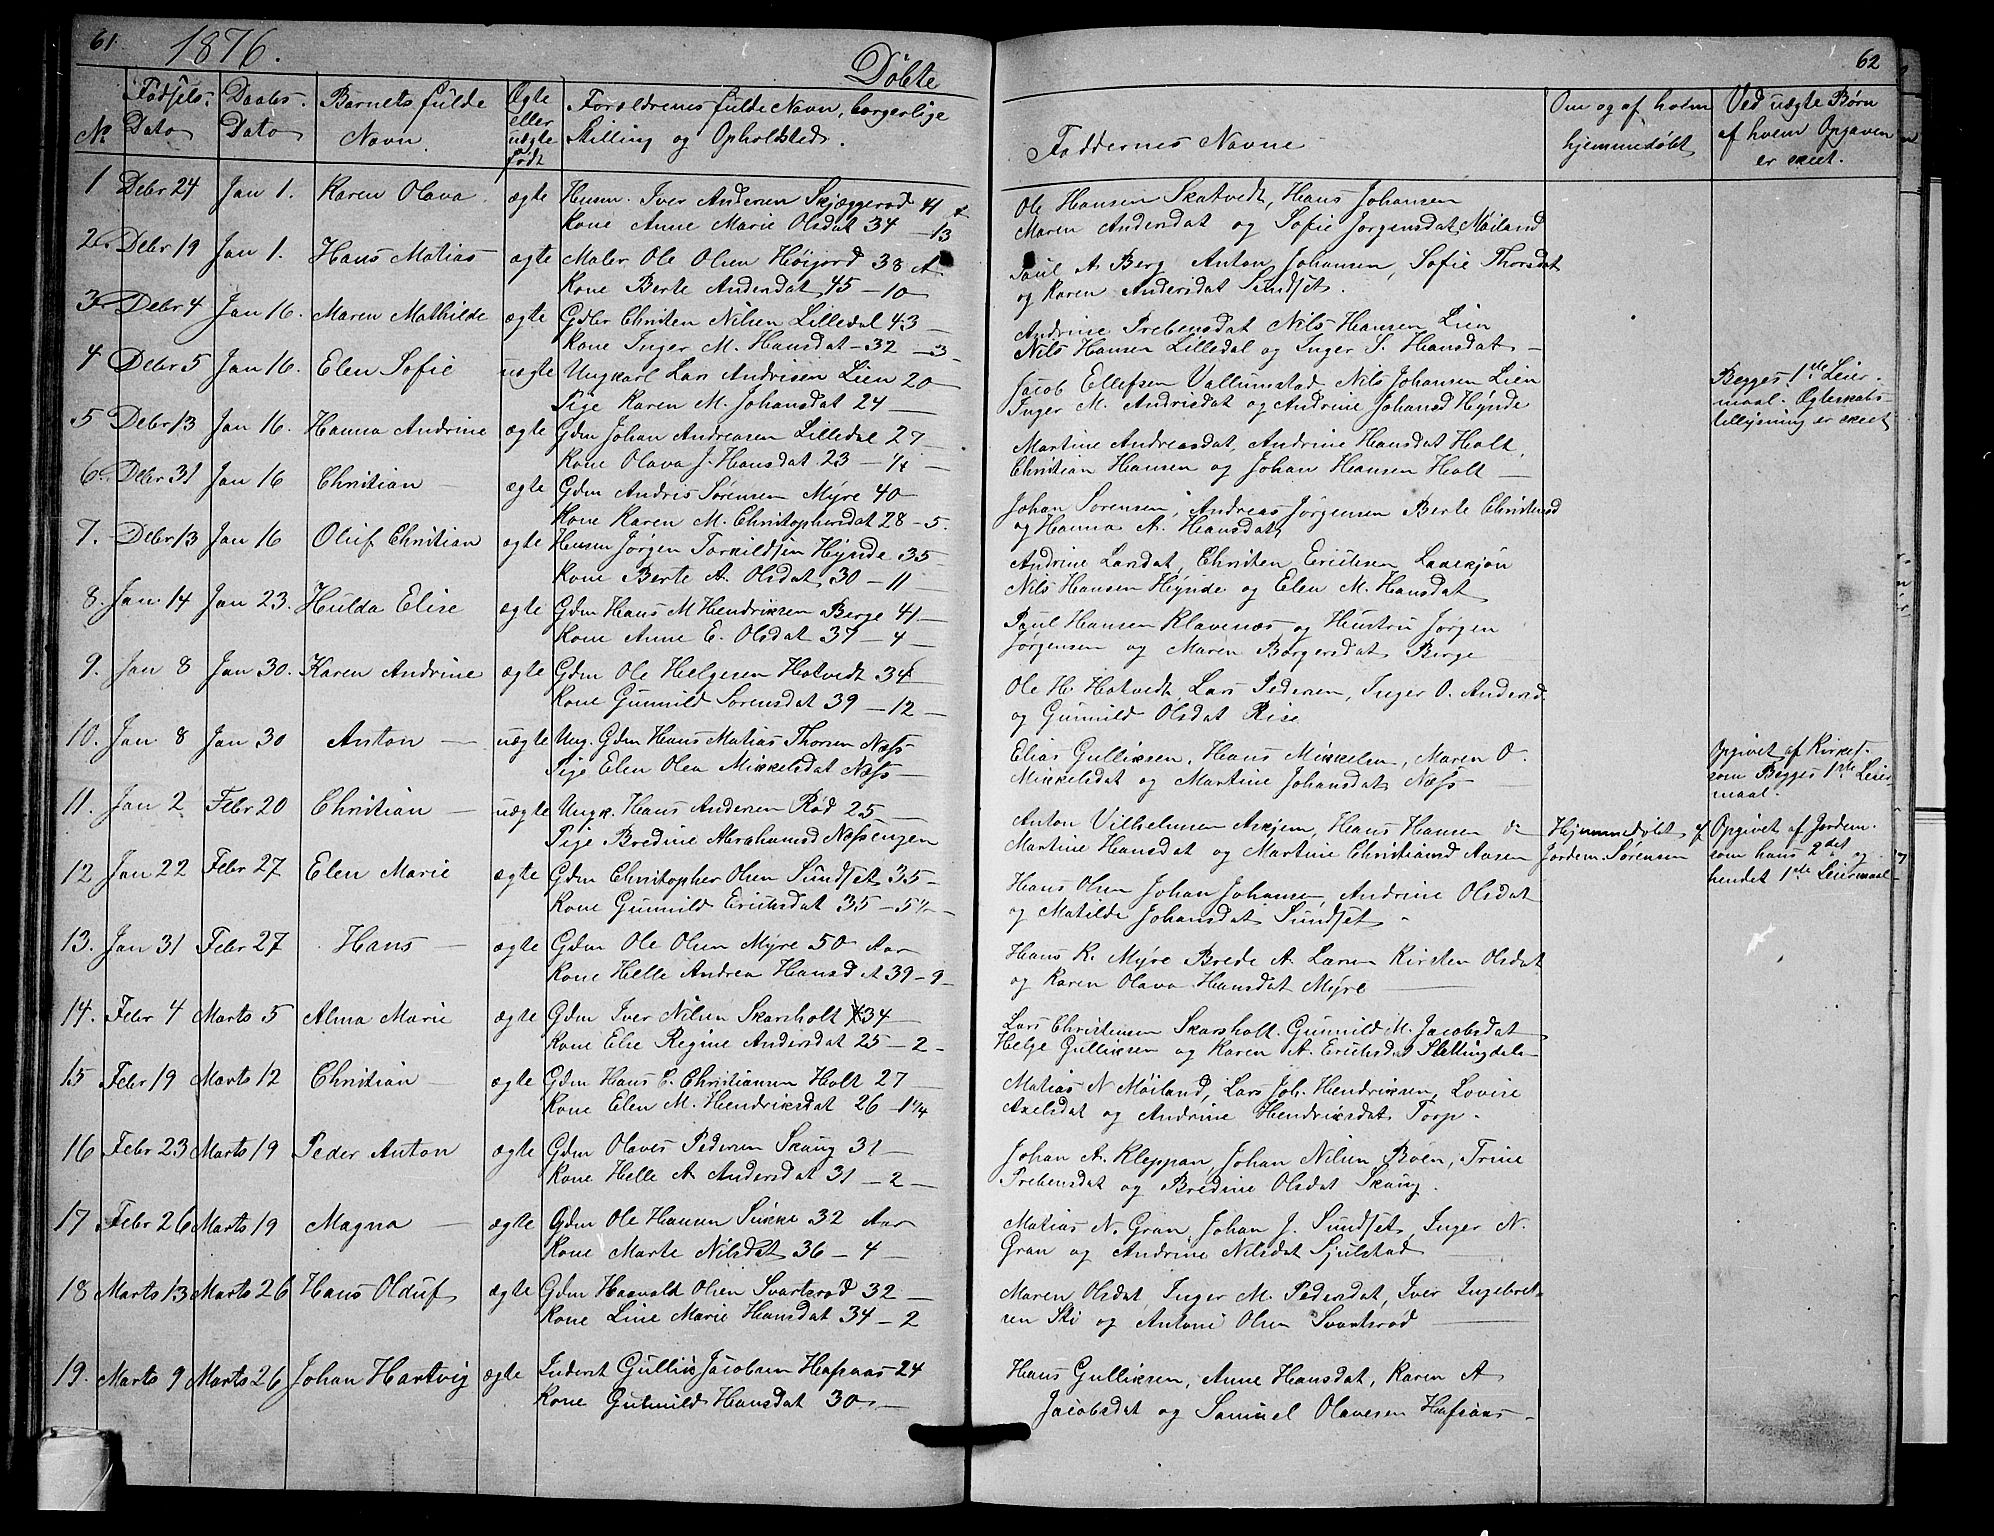 61
1876.
Döbte
62
No
Födsels-
Dato
Daabs-
Dato
Barnets fulde
Navn.
Ægte
eller
uægte
født
Forældrenes fulde Navn, borgerlige
Stilling og Opholdsted.
Faddernes Navne
Om og af hvem
hjemmedøbt
Ved uægte Børn
af hvem Opgaven
er skeet.
1 Debr 24 Jan 1. Karen Olava. ægte Husm. Iver Andersen Skjæggerød 41
Kone Anne Marie Olsdat 34 — 13
Ole Hansen Skatvedt, Hans Johansen
Maren Andersdat og Sofie Jørgensdat Møiland
2. Debr 19 Jan 1. Hans Matias ægte Maler Ole Olsen Høijord 38 A
Kone Berte Andersdat 45 — 10
Paul A Berg Anton Johansen, Sofie Thorsdat
og Karen Andersdat Sundset.
3 Debr 4 Jan 16. Maren Mathilde ægte Gdbr Christen Nilsen Lilledal 43 —
Kone Inger M. Hansdat — 32 — 3 —
Andrine Prebensdat Nils Hansen Lien
Nils Hansen Lilledal og Inger S. Hansdat —
4 Debr 5 Jan 16. Elen Sofie uægte Ungkarl Lars Andrisen Lien 20 —
Pige Karen M. Johansdat 24 —
Jacob Ellefsen Vallumstad, Nils Johansen Lien
Inger M. Andrisdat og Andrine Johansd Hynde
Begges 1ste Leier-
maal. Ægteskabs-
tillysning er skeet
5 Debr 13 Jan 16. Hanna Andrine ægte Gdm Johan Andreasen Lilledal 27 —
Kone Olava J. Hansdat 23 — 1/4 —
Martine Andreasdat, Andrine Hansdat Holt,
Christian Hansen og Johan Hansen Holt —
6. Debr 31 Jan 16 Christian — ægte Gdm Andris Sørensen Myre 40 —
Kone Karen M. Christophersdat 28 — 5.
Johan Sørensen, Andreas Jørgensen Berte Christensd
og Hanna A. Hansdat
7. Debr 13 Jan 16 Oluf Christian ægte Husm Jørgen Torkildsen Hynde 35 —
Kone Berte A. Olsdat 30 — 11 —
Andrine Larsdat, Christen Ericksen
Nils Hansen Hynde og Elen M. Hansdat
8. Jan. 14 Jan 23. Hulda Elise ægte Gdm Hans M Hendriksen Berge 41 —
Kone Anne E. Olsdat 37 — 4 —
Paul Hansen Klavenæs og Hustru Jørgen
Jørgensen og Maren Borgersdat Berge
9. Jan 8 Jan 30. Karen Andrine ægte Gdm Ole Helgesen Hotvedt 34
Kone Gunnild Sørensdat 39 — 12 —
Ole H. Hotvedt, Lars Pedersen, Inger O. Andersd
og Gunnild Olsdat Rise
10. Jan. 8 Jan 30 Anton — uægte Ung. Gdm Hans Matias Thorsen Næss —
Pige Elen Olea Mikkelsdat Næss —
Elias Gulliksen, Hans Mikkelsen, Maren O.
Mikkelsdat og Martine Johansdat Næss —
Opgivet af Kirkes.
som Begges 1ste Leier-
maal.
11. Jan 2 Febr 20 Christian — uægte Ungk. Hans Andersen Rød 25 —
Pige Bredine Abrahamsd Næssengen
Anton Vilhelmsen Askjem, Hans Hansen do
Martine Hansdat og Martine Christiansd Aasen
Hjemmedøbt af
Jordem. Sørensen
Opgivet af Jordem.
som hans 2det og
hendes 1ste Leiermaal
12 Jan 22 Febr 27 Elen Marie ægte Gdm Christopher Olsen Sundset 35 —
Kone Gunnild Ericksdat 35 — 5 1/2 —
Hans Olsen Johan Johansen, Andrine Olsdat
og Matilde Johansdat Sundset —
13. Jan 31 Febr 27 Hans — ægte Gdm Ole Olsen Myre 50 Aar
Kone Helle Andrea Hansdat 39 — 9 —
Hans K. Myre Brede A. Larsen Kirsten Olsdat
og Karen Olava Hansdat Myre —
14. Febr 4 Marts 5 Alma Marie ægte Gdm Iver Nilsen Skarsholt 34 —
Kone Else Regine Andersdat 25 — 2 —
Lars Christensen Skarsholt. Gunnild M. Jacobsdat
Helge Gulliksen og Karen A. Ericksdat Slettingdalen
15 Febr 19 Marts 12 Christian — ægte Gdm Hans C. Christiansen Holt 27
Kone Elen M. Hendriksdat 26 — 1 1/4
Matias N Møiland, Lars Joh. Hendriksen, Lovise
Axelsdat og Andrine Hendriksdat Torp.
16 Febr 23 Marts 19 Peder Anton ægte Gdm Olaves Pedersen Skaug 31 —
Kone Helle A Andersdat 31 — 2 —
Johan A. Kleppan, Johan Nilsen Böen, Trine
Prebensdat og Bredine Olsdat Skaug.
17 Febr 26 Marts 19 Magna — ægte Gdm Ole Hansen Sukke 32 Aar
Kone Marte Nilsdat 36 — 4 —
Matias N. Gran, Johan J. Sundset, Inger N.
Gran og Andrine Nilsdat Sjulstad —
18 Marts 13 Marts 26 Hans Olduf ægte Gdm Haavald Olsen Svartsrød 32 —
Kone Line Marie Hansdat 34 — 2
Maren Olsdat, Inger M. Pedersdat, Iver Ingebret-
sen Ski og Antoni Olsen Svartsrød —
19. Marts 9 Marts 26 Johan Hartvig ægte Inderst Gullik Jacobsen Hafsaas 24
Kone Gunnild Hansdat 30 —
Hans Gulliksen, Anne Hansdat, Karen A
Jacobsdat og Samuel Olavesen Hafsaas —